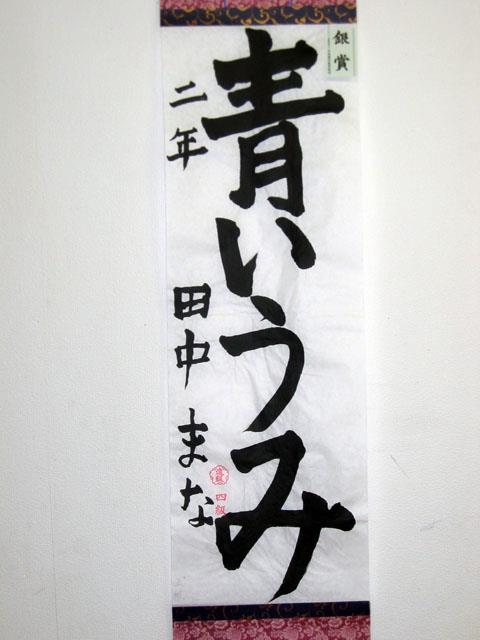 銀賞
青いうみ
二年 田中 まな
四級